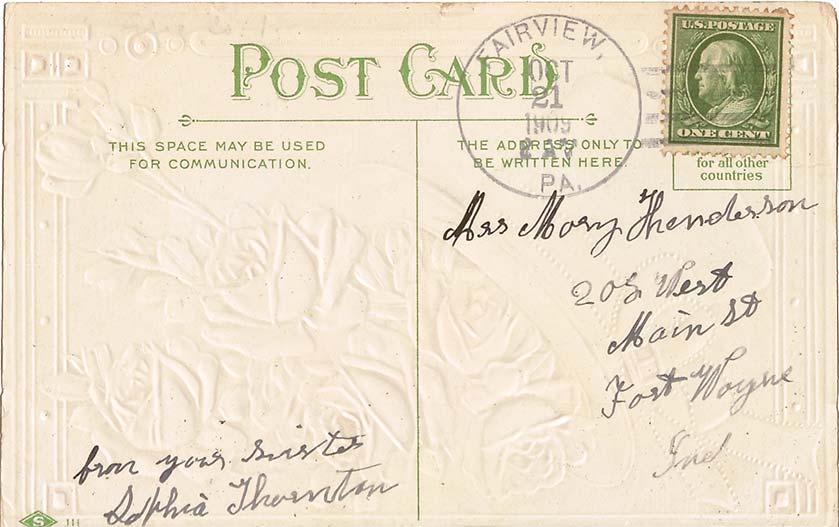 POST CARD
THIS SPACE MAY BE USED
FOR COMMUNICATION.
THE ADDRESS ONLY TO
BE WRITTEN HERE.
FAIRVIEW,
OCT
21
1909
PA.
U.S. POSTAGE
ONE CENT
for all other
countries
Mary Henderson
West
Main St
Fort Wayne
Ind
from your sister
Sophia Thornton
S 111